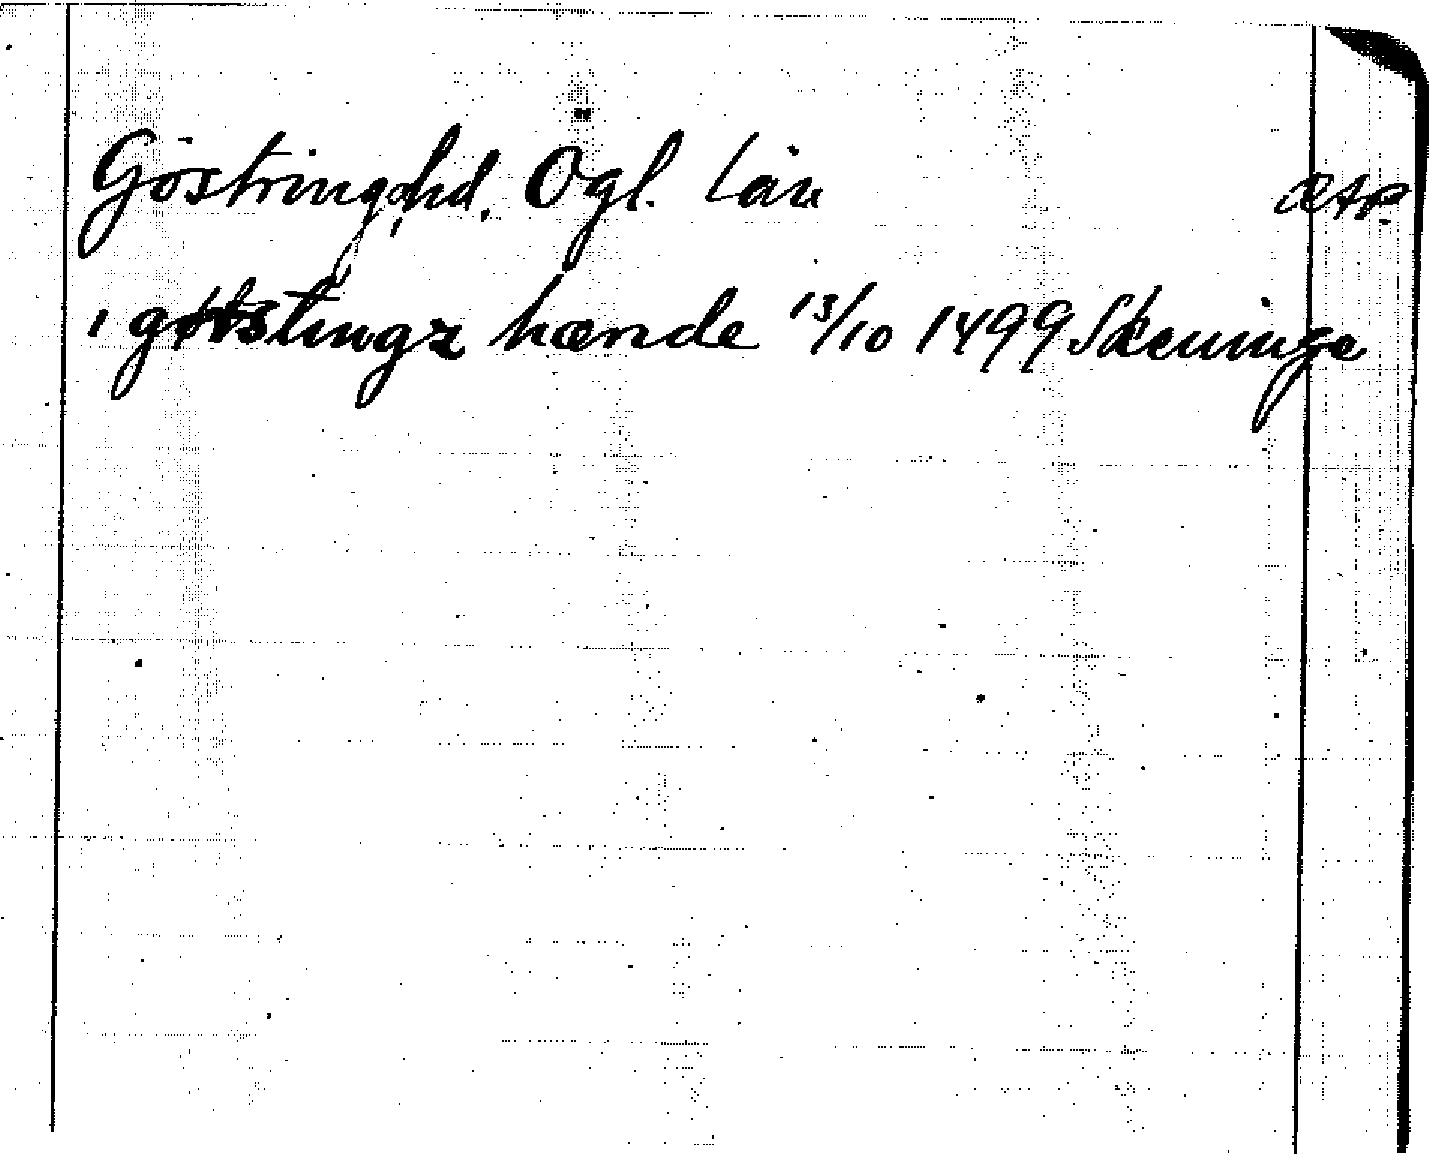 Göstring, hd. Ögl. län
i gøtstingz hænde 13/10 1499 Skeninge